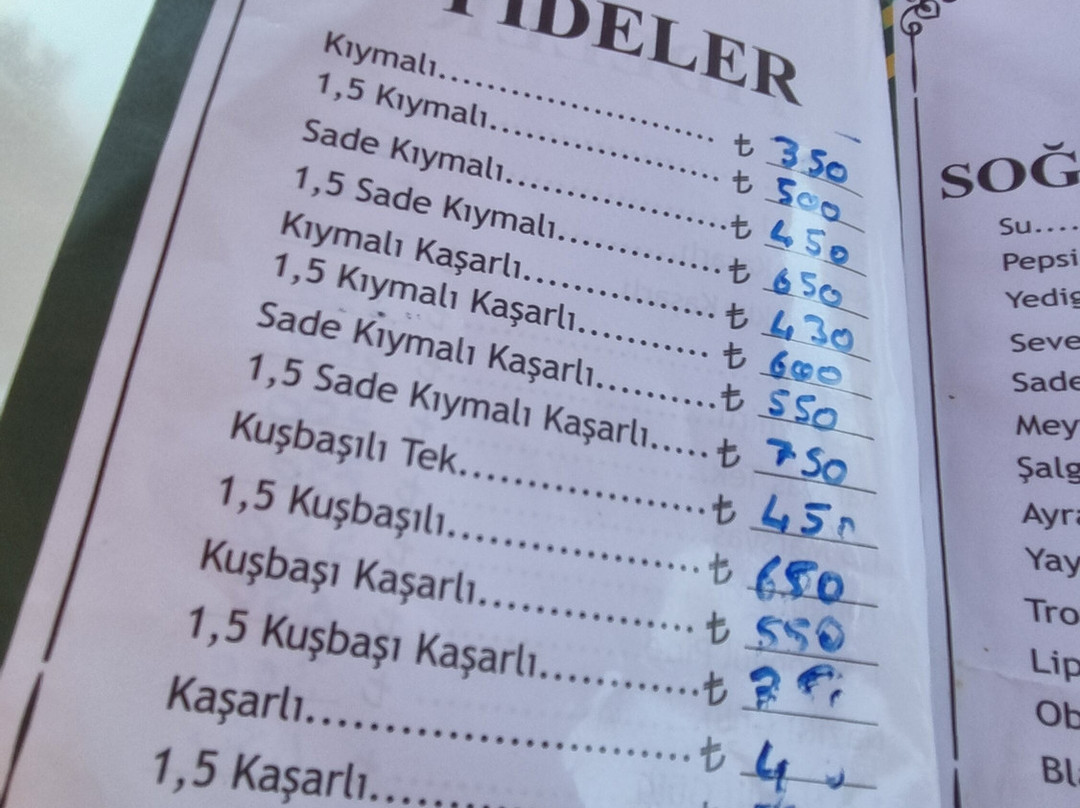 PİDELER
Kıymalı........................ ₺ 350
1,5 Kıymalı.................... ₺ 500
Sade Kıymalı................... ₺ 450
1,5 Sade Kıymalı............... ₺ 650
Kıymalı Kaşarlı................ ₺ 430
1,5 Kıymalı Kaşarlı............ ₺ 600
Sade Kıymalı Kaşarlı........... ₺ 550
1,5 Sade Kıymalı Kaşarlı..... ₺ 750
Kuşbaşılı Tek.................. ₺ 450
1,5 Kuşbaşılı.................. ₺ 650
Kuşbaşı Kaşarlı................ ₺ 550
1,5 Kuşbaşı Kaşarlı............ ₺
Kaşarlı........................ ₺
1,5 Kaşarlı....
SOĞ
Su....
Pepsi
Yedig
Seve
Sade
Mey
Şalg
Ayra
Yay
Tro
Lip
Ob
Bl